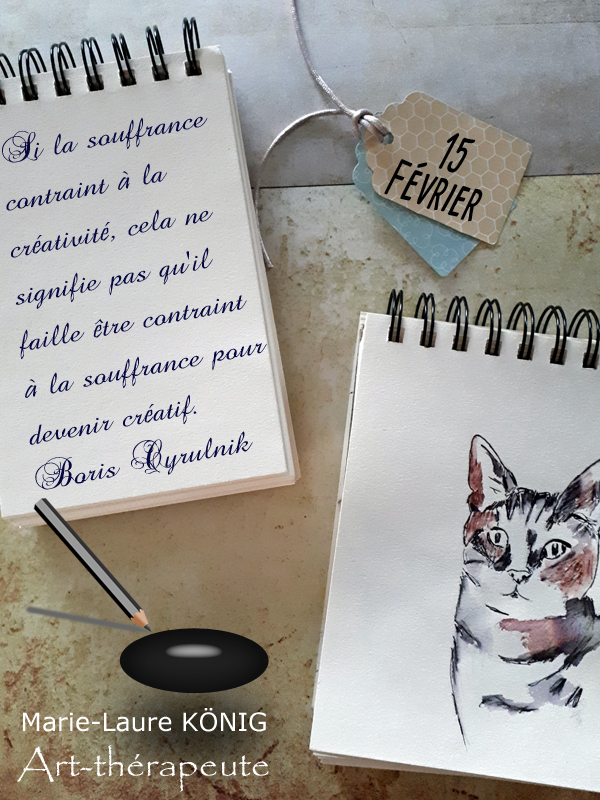 Si la souffrance
contraint à la
créativité, cela ne
signifie pas qu'il
faille être contraint
à la souffrance pour
devenir créatif.
Boris Cyrulnik
15
FÉVRIER
Marie-Laure KÖNIG
Art-thérapeute